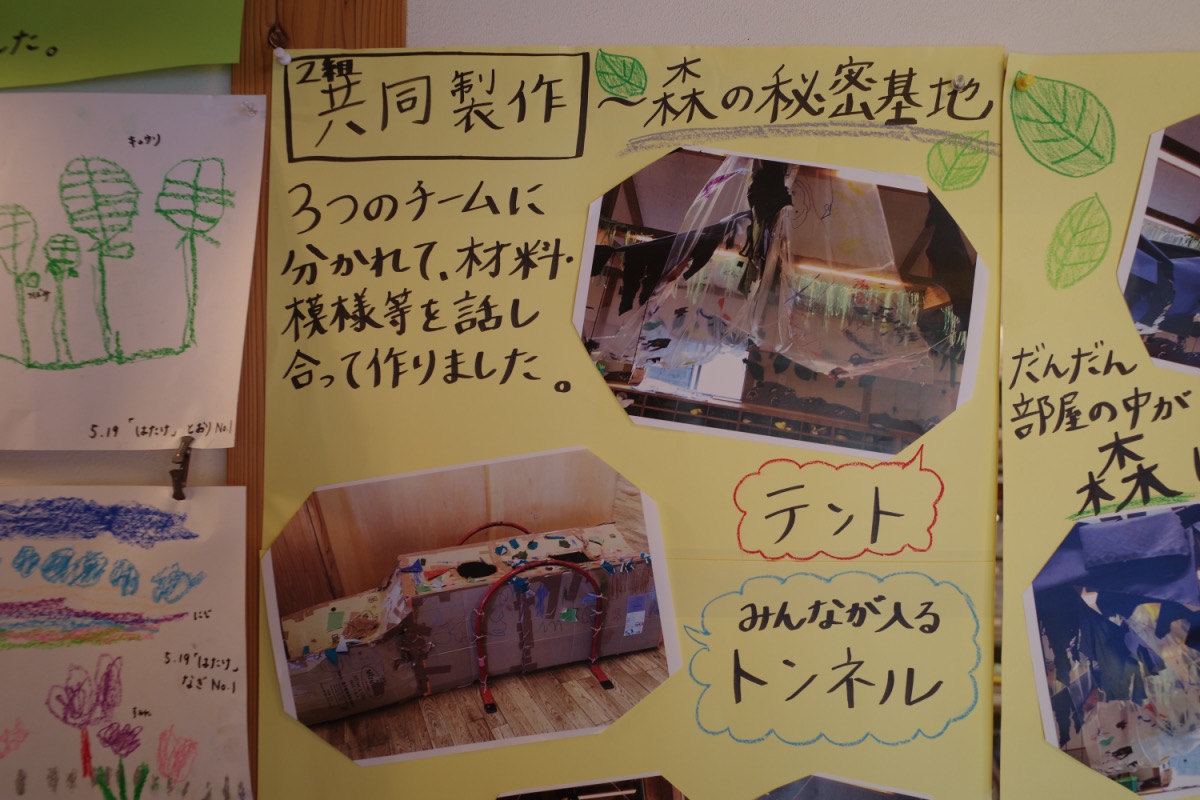 した。
きゅうり
5.19「はたけ」とおり No.1
にじ
5.19「はたけ」
なぎ No.1
2組
共同製作
～森の秘密基地
3つのチームに
分かれて、材料・
模様等を話し
合って作りました。
テント
みんなが入る
トンネル
だんだん
部屋の中が
森